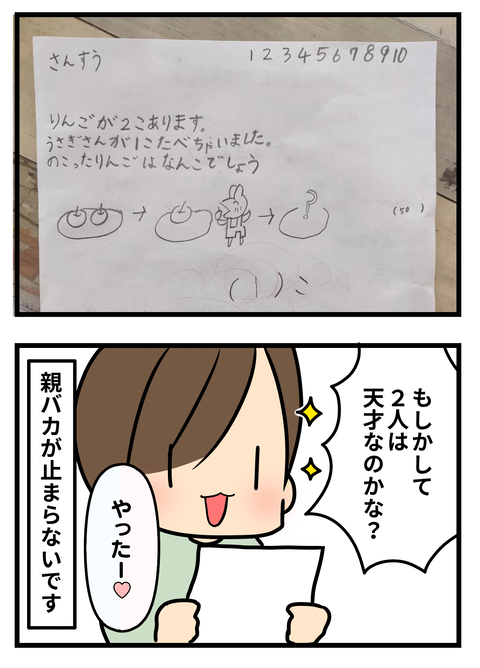 さんすう
1 2 3 4 5 6 7 8 9 10
りんごが2こあります。
うさぎさんが1こたべちゃいました。
のこったりんごはなんこでしょう
?
(50)
(1)こ
もしかして
2人は
天才なのかな?
やったー♡
親バカが止まらないです